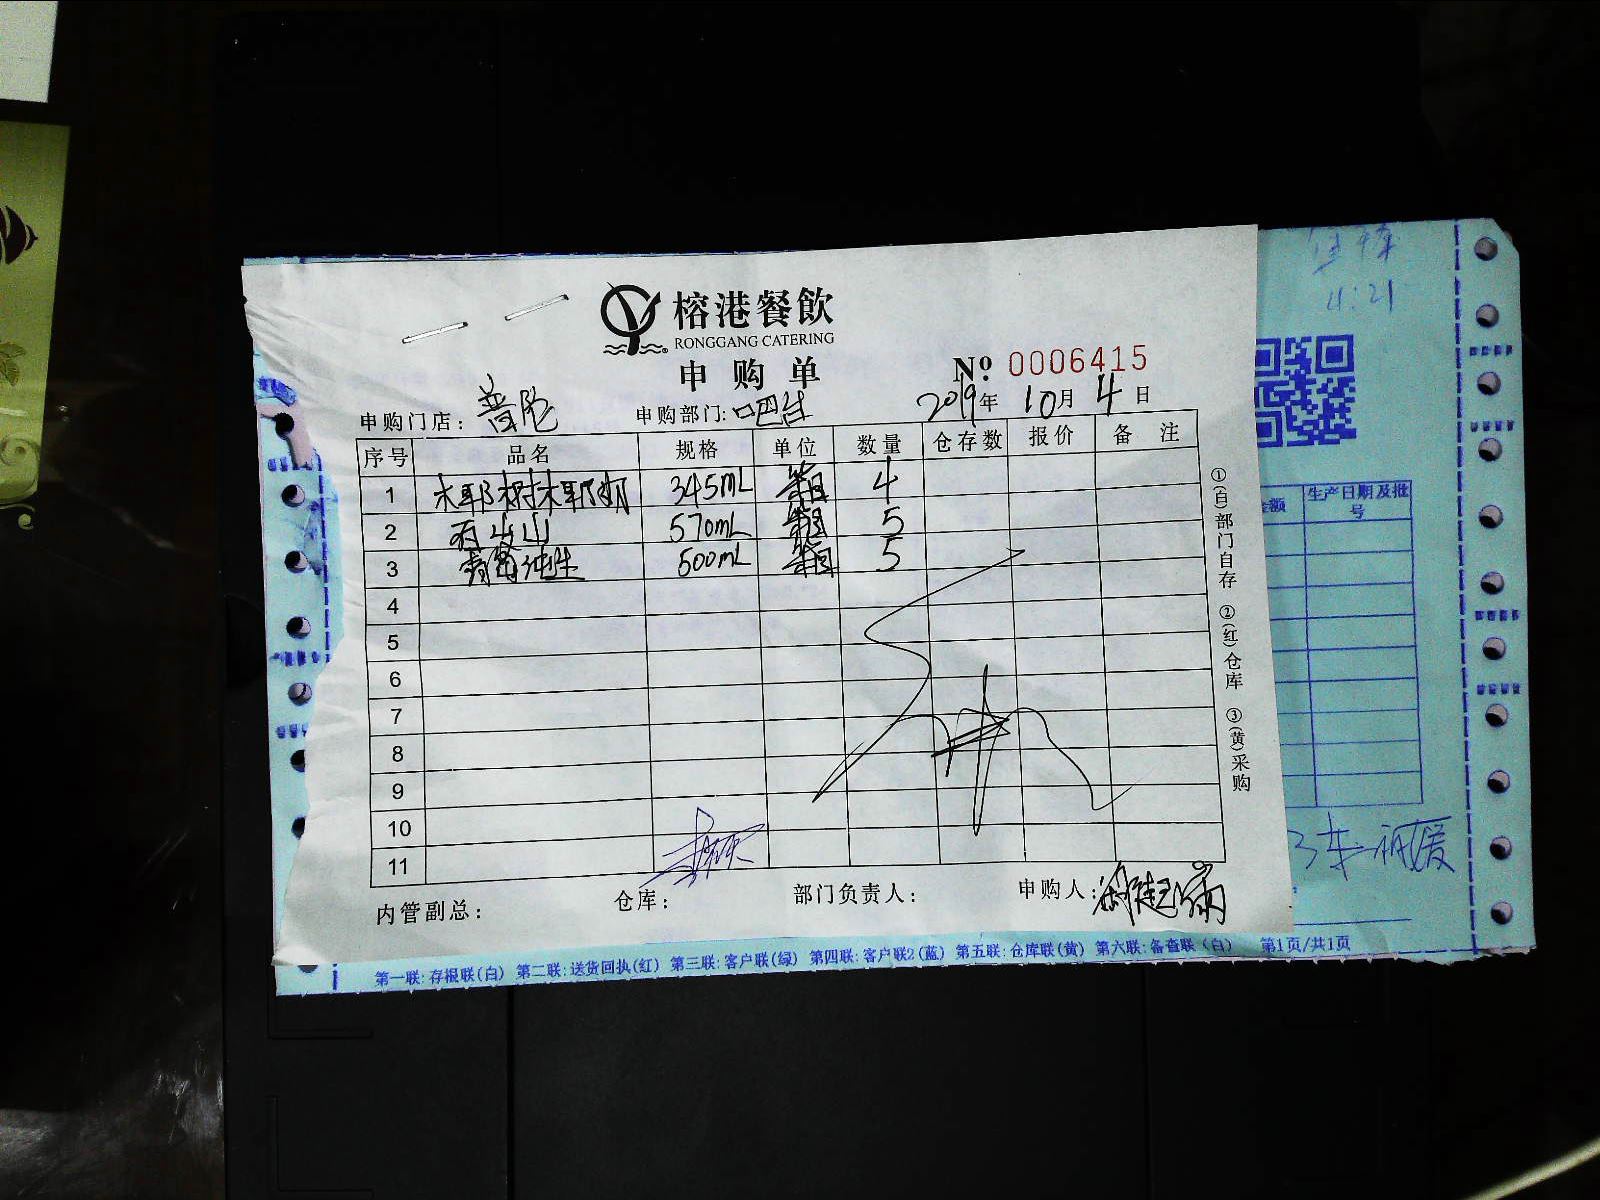 榕港餐飲
RONGGANG CATERING
申购单
№ 0006415
申购门店：普陀 申购部门：吧台 2019年10月4日
序号 品名 规格 单位 数量 仓存数 报价 备注
1 椰树椰奶 345mL 箱 4
2 百岁山 570mL 箱 5
3 青岛纯生 500mL 箱 5
4
5
6
7
8
9
10
11
内管副总： 仓库： 部门负责人： 申购人：
①(白)部门自存 ②(红)仓库 ③(黄)采购
4:21
金额 生产日期及批号
第一联：存根联(白) 第二联：送货回执(红) 第三联：客户联(绿) 第四联：客户联2(蓝) 第五联：仓库联(黄) 第六联：备查联(白) 第1页/共1页